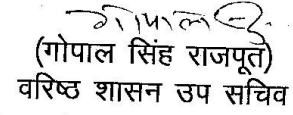 गोपाल सिंह
(गोपाल सिंह राजपूत)
वरिष्ठ शासन उप सचिव